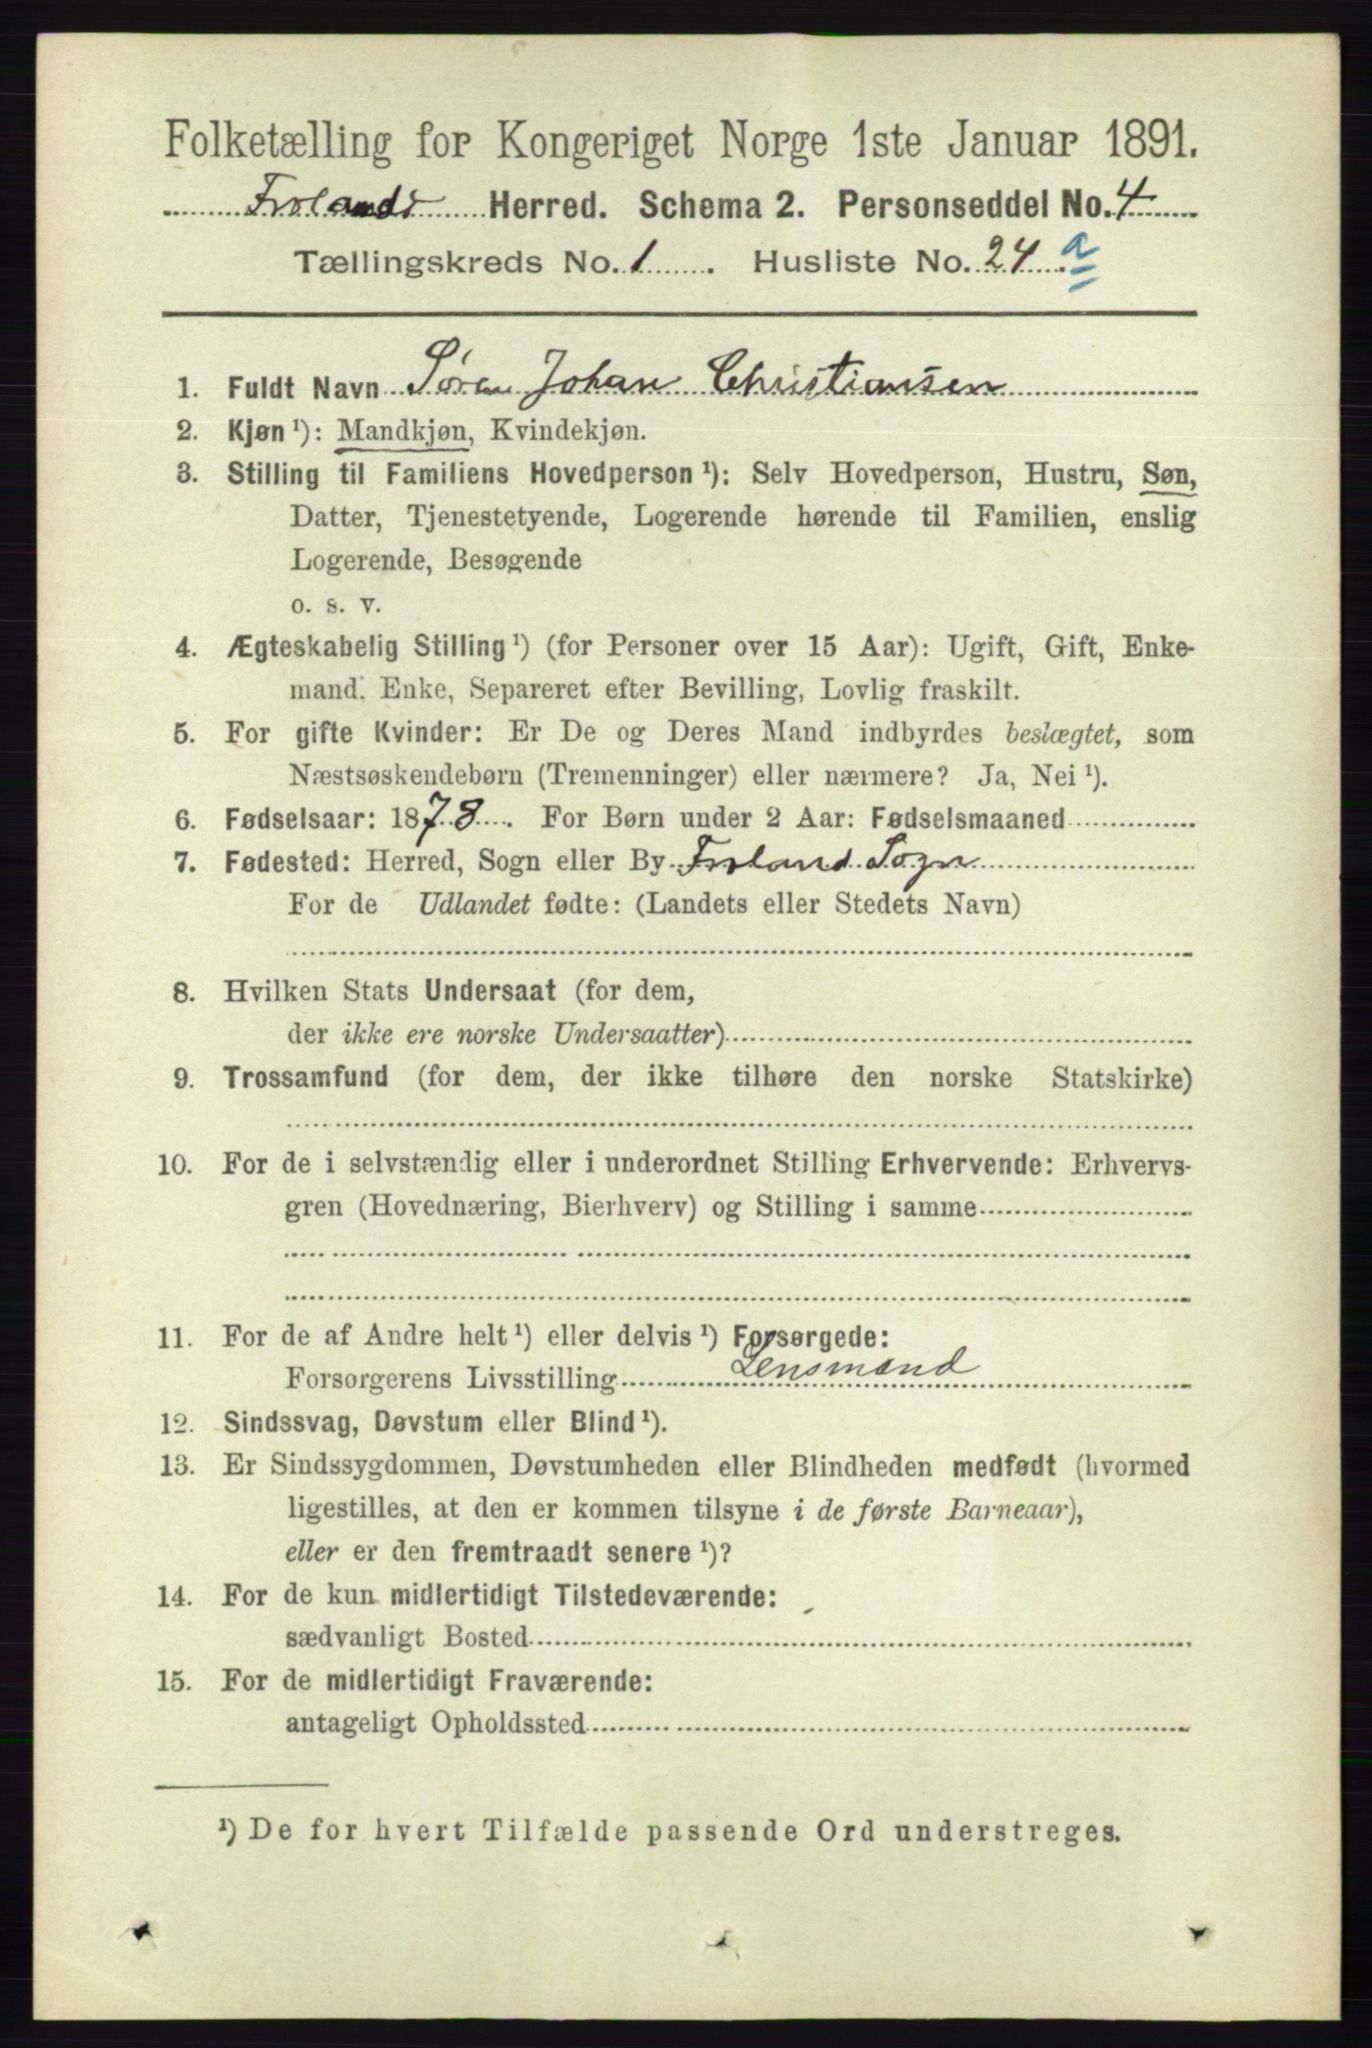 Folketælling for Kongeriget Norge 1ste Januar 1891.
Frolands Herred. Schema 2. Personseddel No. 4
Tællingskreds No. 1. Husliste No. 24 a
1. Fuldt Navn Søren Johan Christiansen
2. Kjøn ¹): Mandkjøn, Kvindekjøn.
3. Stilling til Familiens Hovedperson ¹): Selv Hovedperson, Hustru, Søn,
Datter, Tjenestetyende, Logerende hørende til Familien, enslig
Logerende, Besøgende
o. s. v.
4. Ægteskabelig Stilling ¹) (for Personer over 15 Aar): Ugift, Gift, Enke-
mand, Enke, Separeret efter Bevilling, Lovlig fraskilt.
5. For gifte Kvinder: Er De og Deres Mand indbyrdes beslægtet, som
Næstsøskendebørn (Tremenninger) eller nærmere? Ja, Nei ¹).
6. Fødselsaar: 1878. For Børn under 2 Aar: Fødselsmaaned
7. Fødested: Herred, Sogn eller By Froland Sogn
For de Udlandet fødte: (Landets eller Stedets Navn)
8. Hvilken Stats Undersaat (for dem,
der ikke ere norske Undersaatter)
9. Trossamfund (for dem, der ikke tilhøre den norske Statskirke)
10. For de i selvstændig eller i underordnet Stilling Erhvervende: Erhvervs-
gren (Hovednæring, Bierhverv) og Stilling i samme
11. For de af Andre helt ¹) eller delvis ¹) Forsørgede:
Forsørgerens Livsstilling Lensmand
12. Sindssvag, Døvstum eller Blind ¹).
13. Er Sindssygdommen, Døvstumheden eller Blindheden medfødt (hvormed
ligestilles, at den er kommen tilsyne i de første Barneaar),
eller er den fremtraadt senere ¹)?
14. For de kun midlertidigt Tilstedeværende:
sædvanligt Bosted
15. For de midlertidigt Fraværende:
antageligt Opholdssted
¹) De for hvert Tilfælde passende Ord understreges.